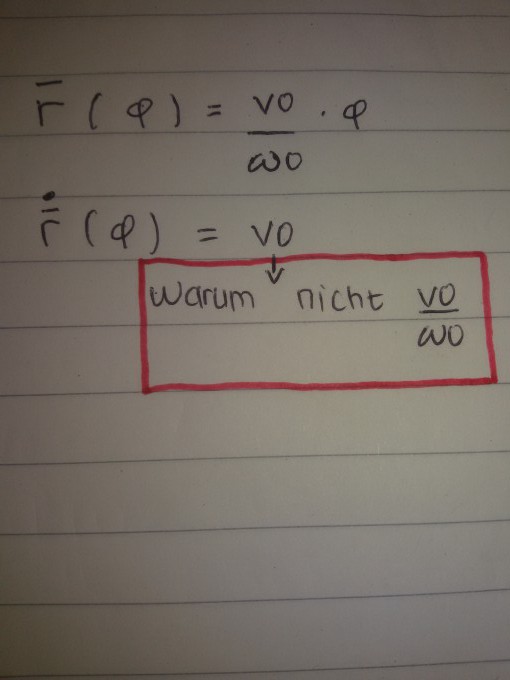 r̄ (φ) = v0/ω0 · φ
ṙ̄ (φ) = v0
↓
warum nicht v0/ω0